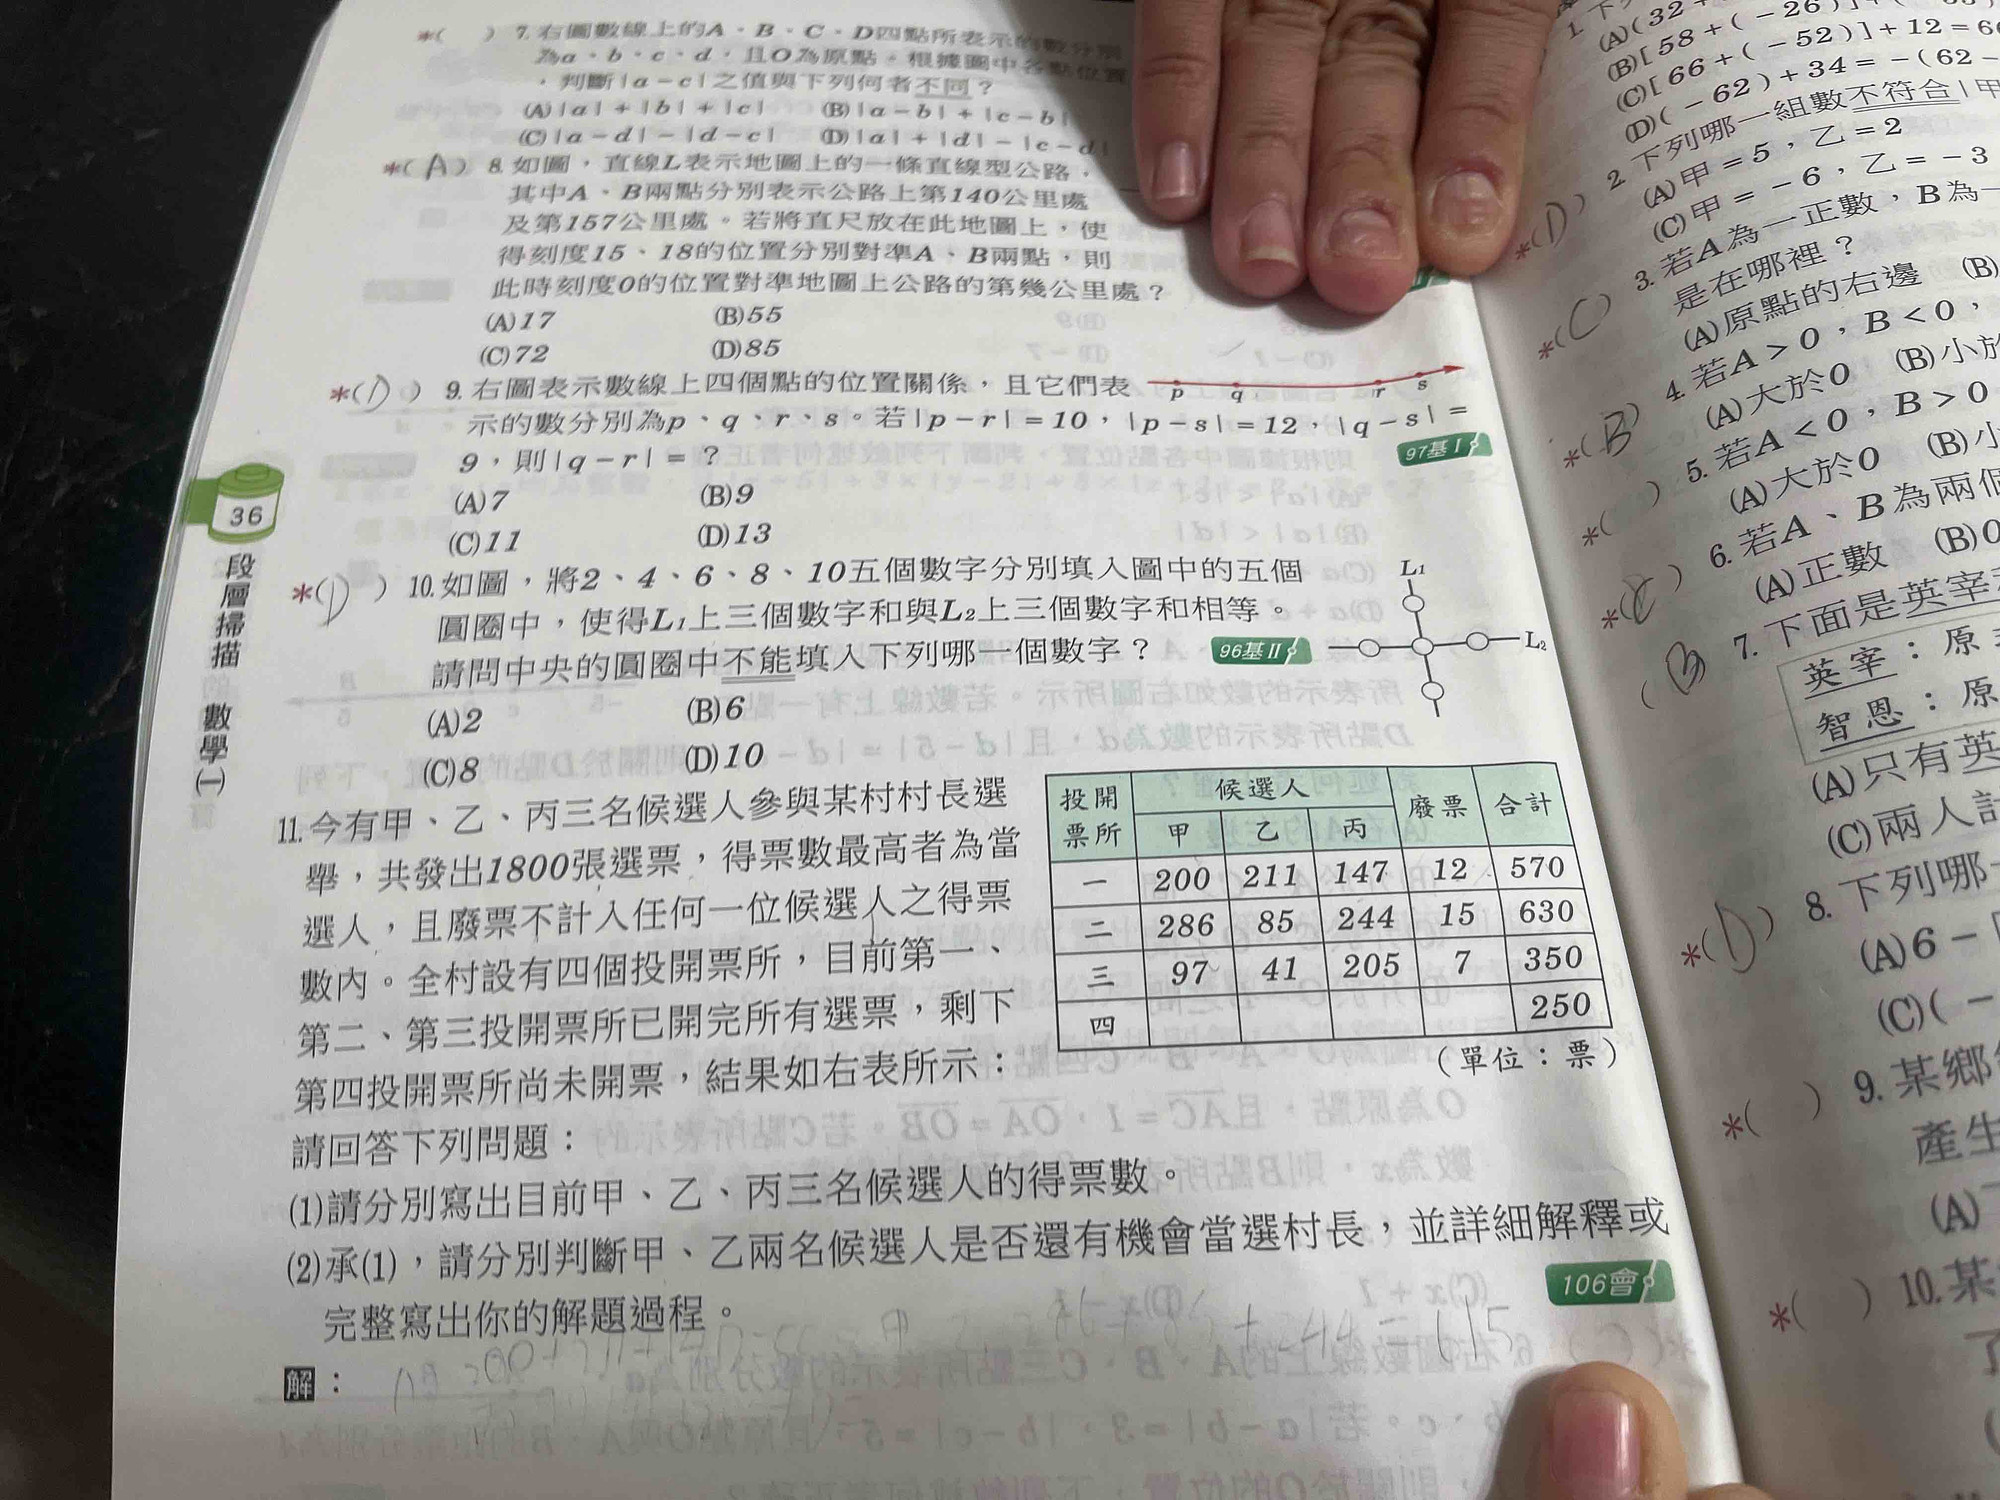 *( ) 7. 右圖數線上的A、B、C、D四點所表示的數分別
為a、b、c、d,且O為原點。根據圖中各點位置
,判斷|a-c|之值與下列何者不同?
(A)|a|+|b|+|c| (B)|a-b|+|c-b|
(C)|a-d|-|d-c| (D)|a|+|d|-|c-d|
*(A) 8. 如圖,直線L表示地圖上的一條直線型公路,
其中A、B兩點分別表示公路上第140公里處
及第157公里處。若將直尺放在此地圖上,使
得刻度15、18的位置分別對準A、B兩點,則
此時刻度0的位置對準地圖上公路的第幾公里處?
(A)17 (B)55
(C)72 (D)85
*(D) 9. 右圖表示數線上四個點的位置關係,且它們表
示的數分別為p、q、r、s。若|p-r|=10,|p-s|=12,|q-s|=
9,則|q-r|=? 97基Ⅰ
(A)7 (B)9
(C)11 (D)13
p q r s
*(D) 10. 如圖,將2、4、6、8、10五個數字分別填入圖中的五個
圓圈中,使得L₁上三個數字和與L₂上三個數字和相等。
請問中央的圓圈中不能填入下列哪一個數字? 96基Ⅱ
(A)2 (B)6
(C)8 (D)10
L₁
L₂
11. 今有甲、乙、丙三名候選人參與某村村長選
舉,共發出1800張選票,得票數最高者為當
選人,且廢票不計入任何一位候選人之得票
數內。全村設有四個投開票所,目前第一、
第二、第三投開票所已開完所有選票,剩下
第四投開票所尚未開票,結果如右表所示:
請回答下列問題:
(1)請分別寫出目前甲、乙、丙三名候選人的得票數。
(2)承(1),請分別判斷甲、乙兩名候選人是否還有機會當選村長,並詳細解釋或
完整寫出你的解題過程。 106會
解:
投開票所 候選人 廢票 合計
甲 乙 丙
一 200 211 147 12 570
二 286 85 244 15 630
三 97 41 205 7 350
四 250
(單位:票)
36
段層掃描 數學(一)
(A)(32+
(B)[58+(-26)]+(
(C)[66+(-52)]+12=6
(D)(-62)+34=-(62-
*(D) 2. 下列哪一組數不符合|甲
(A)甲=5,乙=2
(C)甲=-6,乙=-3
*(C) 3. 若A為一正數,B為一
是在哪裡?
(A)原點的右邊 (B)
*(B) 4. 若A>0,B<0,
(A)大於0 (B)小於
*( ) 5. 若A<0,B>0
(A)大於0 (B)小
6. 若A、B為兩個
(A)正數 (B)0
(B) 7. 下面是英宰
英宰:原
智恩:原
(A)只有英
(C)兩人
*(D) 8. 下列哪
(A)6-
(C)(-
*( ) 9. 某鄉
產生
(A)
*( ) 10. 某